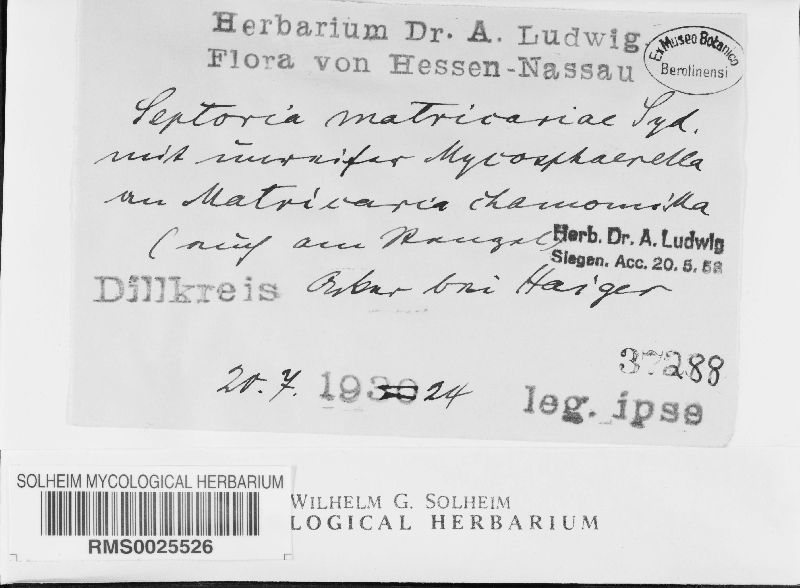 Herbarium Dr. A. Ludwig
Flora von Hessen-Nassau
Ex Museo Botanico
Berolinensi
Septoria matricariae Syd.
mit unreifer Mycosphaerella
an Matricaria chamomilla
(auch am Stengel)
Herb. Dr. A. Ludwig
Siegen. Acc. 20. 5. 58
Dillkreis bei Haiger
37288
20. 7. 1930 24
leg. ipse
SOLHEIM MYCOLOGICAL HERBARIUM
RMS0025526
WILHELM G. SOLHEIM
LOGICAL HERBARIUM